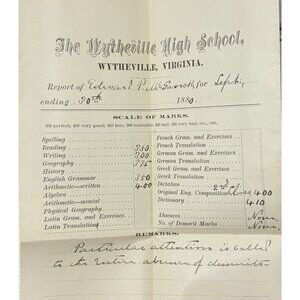 The Wytheville High School,
WYTHEVILLE, VIRGINIA.
Report of Edward P. McGavock, for Sept.
ending 30th 1880.
SCALE OF MARKS.
Spelling
Reading 350
Writing 300
Geography 375
History
English Grammar 350
Arithmetic—written 400
Algebra
Arithmetic—mental
Physical Geography
Latin Gram. and Exercises
Latin Translation
French Gram. and Exercises
French Translation
German Gram. and Exercises
German Translation
Greek Gram. and Exercises
Greek Translation
Dictation
Original Eng. Composition 2nd Class 400
Dictionary 410
Absences None
No. of Demerit Marks None
REMARKS:
Particular attention is called
to the entire absence of demerits.